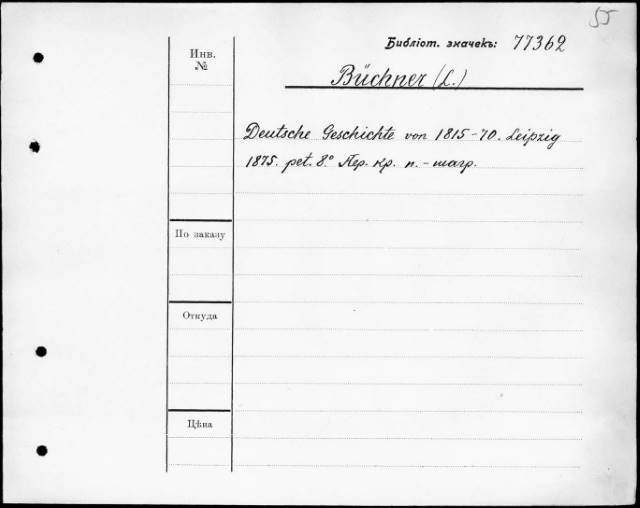 55
Библіот. значекъ: 77362
Инв. №
Büchner (L.)
Deutsche Geschichte von 1815-70. Leipzig
1875. pet. 8.° Пер. кр. п.-шагр.
По заказу
Откуда
Цѣна